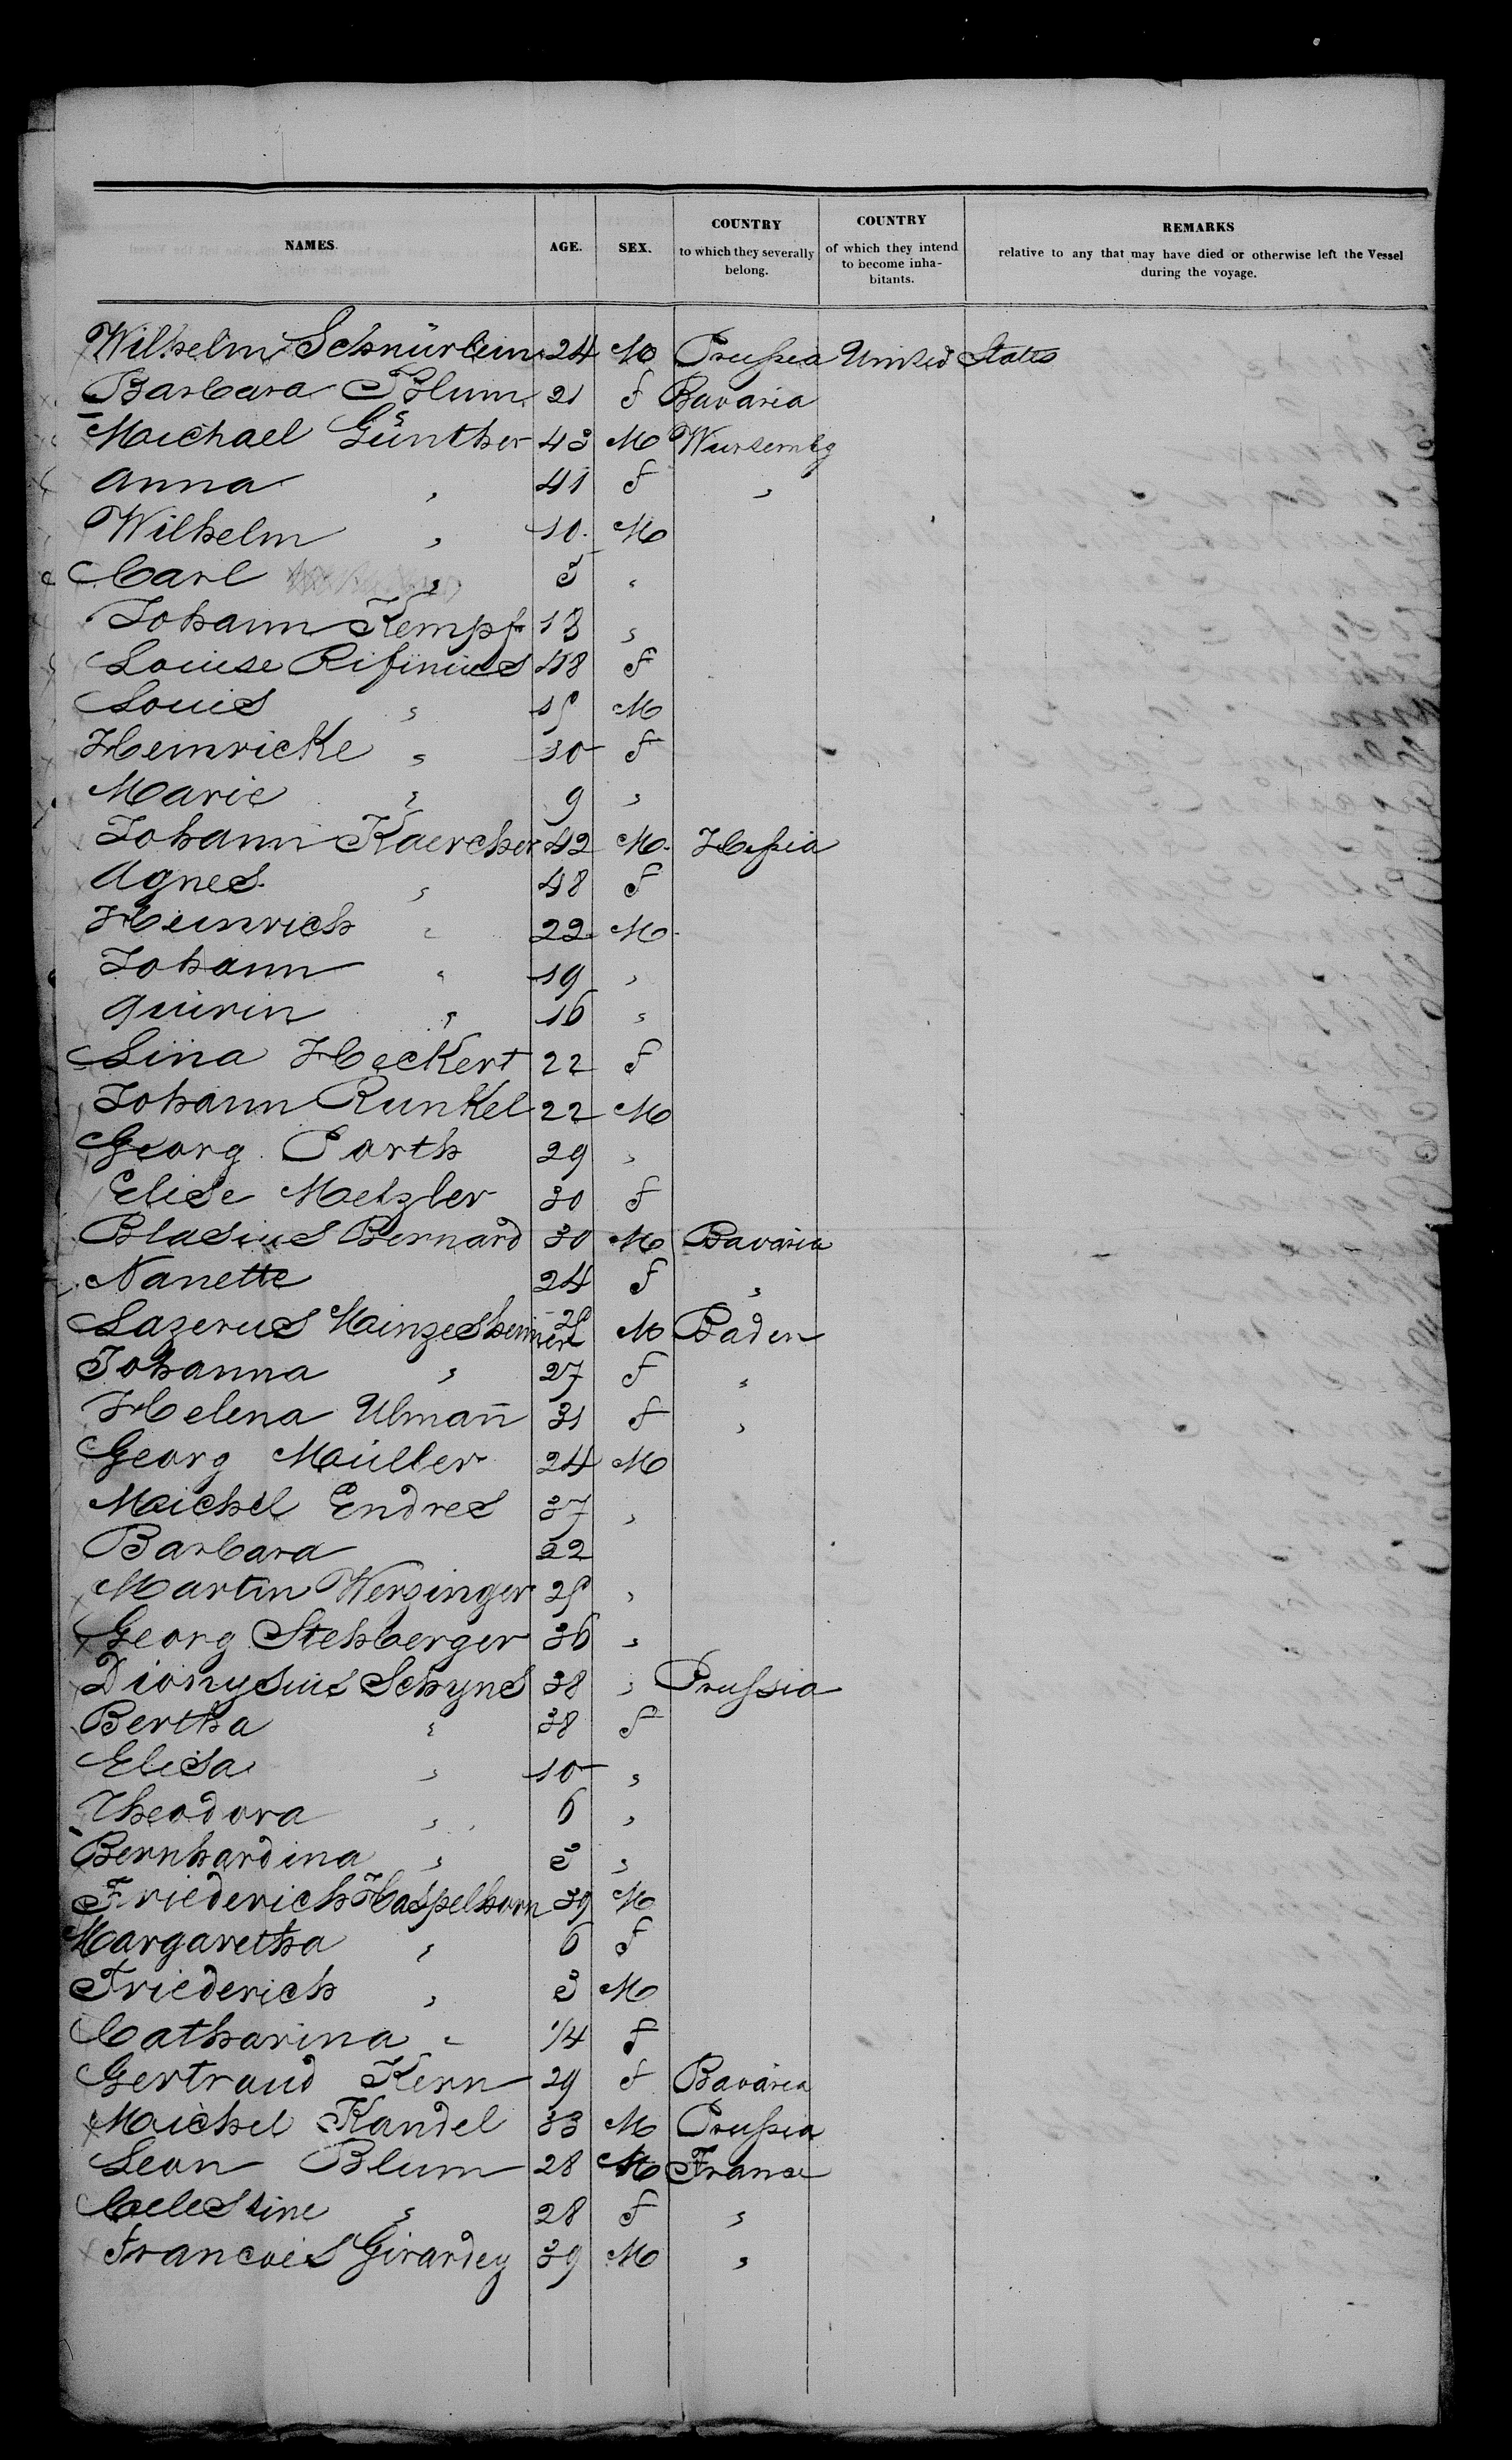 NAMES. AGE. SEX. COUNTRY to which they severally belong. COUNTRY of which they intend to become inhabitants. REMARKS relative to any that may have died or otherwise left the Vessel during the voyage.
Wilhelm Schnürlein 24 M Prussia United States
Barbara Blum 21 f Bavaria
Michael Günther 43 M Wurtembg
Anna " 41 f "
Wilhelm " 10 M
Carl " 5 "
Johann Kempf 13 "
Louise Rifinius 48 f
Louis " 15 M
Heinricke " 10 f
Marie " 9 "
Johann Kaercher 42 M Hessia
Agnes " 48 f
Heinrich " 22 M
Johann " 19 "
Quirin " 16 "
Lina Heckert 22 f
Johann Runkel 22 M
Georg Porth 29 "
Elise Metzler 30 f
Blasius Bernard 30 M Bavaria
Nanette 24 f "
Lazerus Minzesheimer M Baden
Johanna " 27 f "
Helena Ulman̄ 31 f "
Georg Müller 24 M
Michel Endres 37 "
Barbara 22
Martin Werzinger 25 "
Georg Stehberger 36 "
Dionysius Schyns 38 " Prussia
Bertha " 38 f
Elisa " 10 "
Theodora " 6 "
Bernhardina " 3 "
Friederich Haspelhorn 39 M
Margaretha " 6 f
Friederich " 3 M
Catharina " 1/4 f
Gertraud Kern 29 f Bavaria
Michel Kandel 33 M Prussia
Leon Blum 28 M France
Celestine " 28 f "
Francois Girardey 39 M "